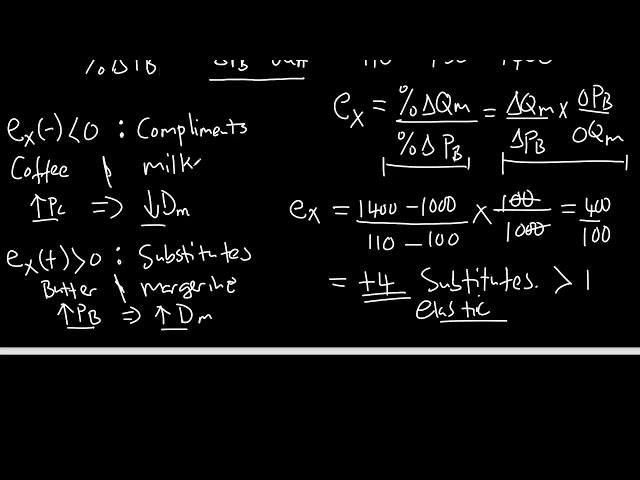 % Δ PB
110
eₓ(-) < 0 : Compliments
Coffee & milk
↑Pc => ↓Dm
eₓ(+) > 0 : Substitutes
Butter & margerine
↑PB => ↑Dm
eₓ = %ΔQm / %ΔPB = ΔQm / ΔPB × OPB / OQm
eₓ = 1400 – 1000 / 110 – 100 × 100 / 1000 = 400 / 100
= +4 Substitutes. > 1
elastic